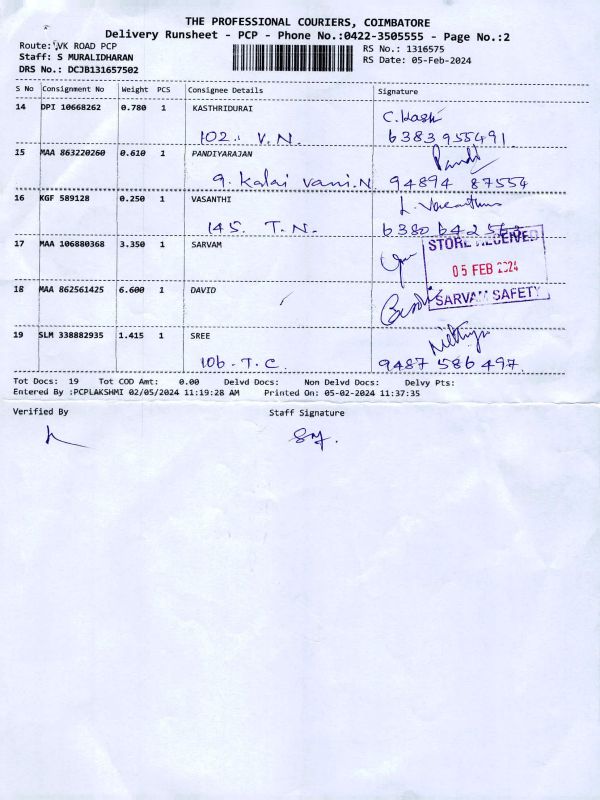 THE PROFESSIONAL COURIERS, COIMBATORE
Delivery Runsheet - PCP - Phone No.:0422-3505555 - Page No.:2
Route: VK ROAD PCP
RS No.: 1316575
Staff: S MURALIDHARAN
RS Date: 05-Feb-2024
DRS No.: DCJB131657502
S No Consignment No Weight PCS Consignee Details Signature
14 DPI 10668262 0.780 1 KASTHRIDURAI
102. V.N. 6383955491
15 MAA 863220260 0.610 1 PANDIYARAJAN
9. Kalai Vani.N 94894 87554
16 KGF 589128 0.250 1 VASANTHI
145. T.N. 6380642
17 MAA 106880368 3.350 1 SARVAM
STORE RECEIVED
05 FEB 2024
SARVAM SAFETY
18 MAA 862561425 6.600 1 DAVID
19 SLM 338882935 1.415 1 SREE
106. T.C. 9487 586 497.
Tot Docs: 19 Tot COD Amt: 0.00 Delvd Docs: Non Delvd Docs: Delvy Pts:
Entered By :PCPLAKSHMI 02/05/2024 11:19:28 AM Printed On: 05-02-2024 11:37:35
Verified By Staff Signature